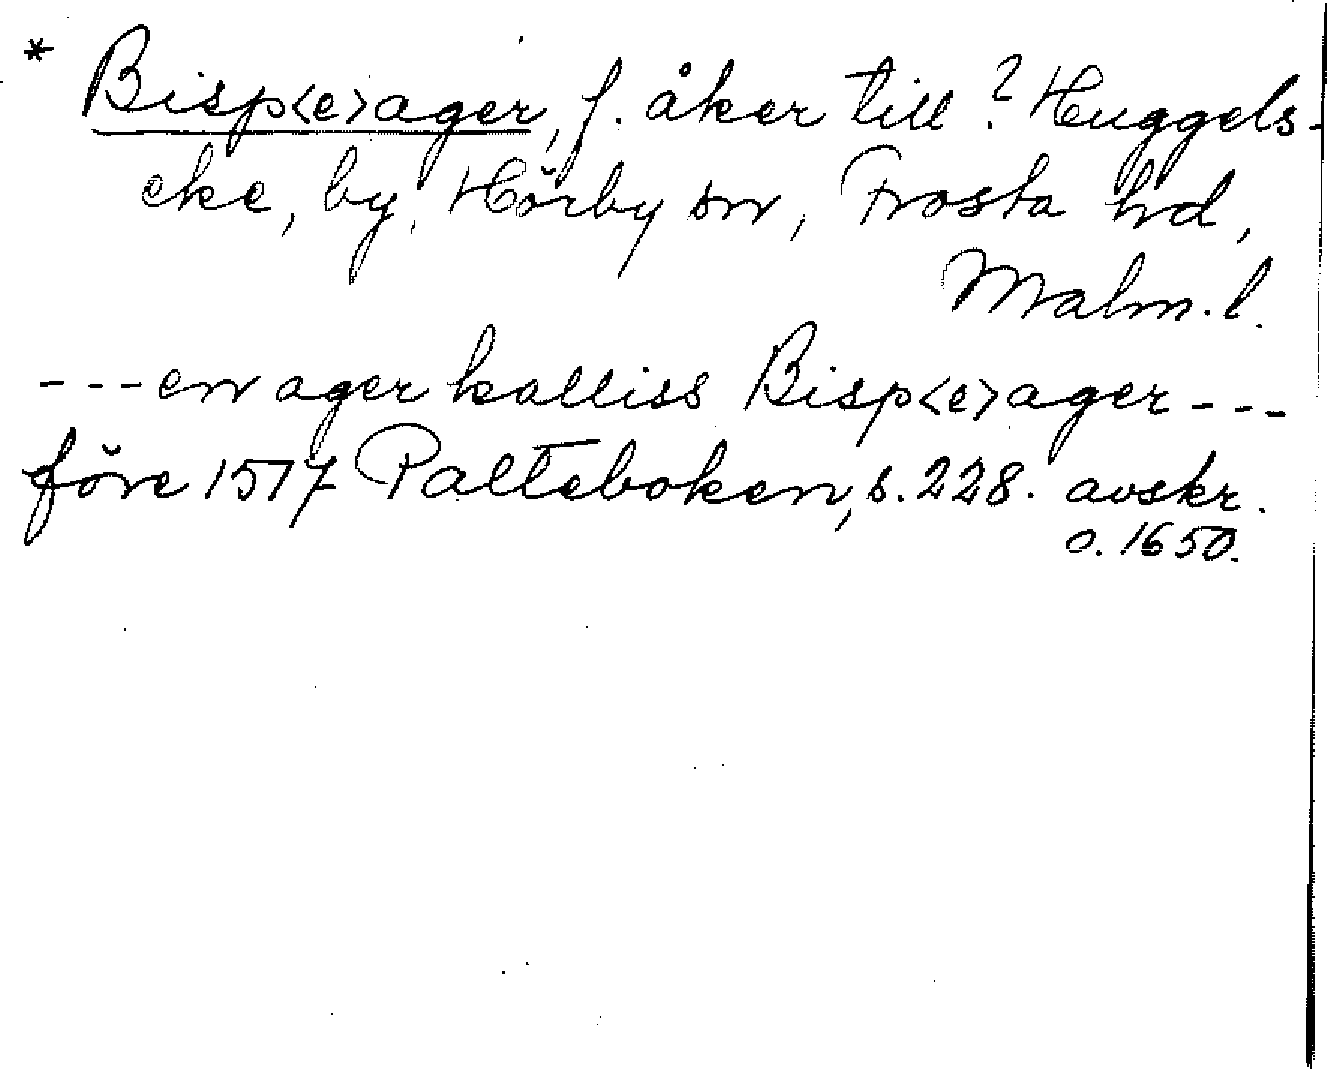 * Bisp<e>ager, f. åker till ? Huggels-
eke, by, Hörby sn, Frosta hd,
Malm. l.
---en ager kalliss Bisp<e>ager---
före 1517 Palteboken, s. 228. avskr.
o. 1650.